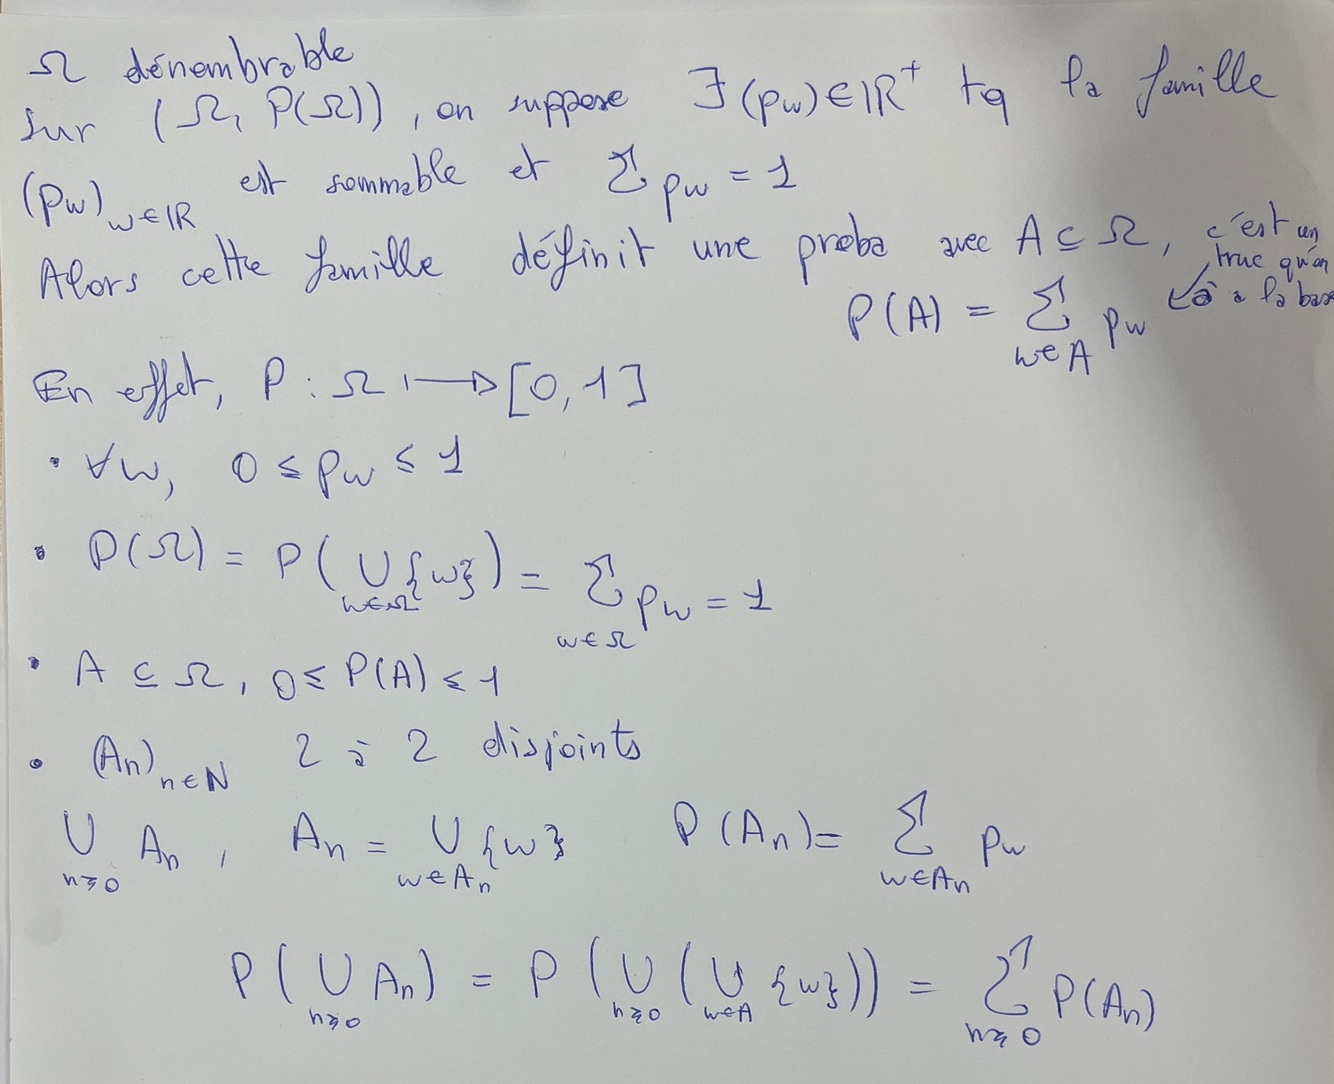 Ω dénombrable
Sur (Ω, P(Ω)), on suppose ∃ (pw) ∈ ℝ⁺ tq la famille
(pw)_{w∈ℝ} est sommable et Σ pw = 1
Alors cette famille définit une proba avec A ⊆ Ω, c'est un truc qu'on a à la base
P(A) = Σ_{w∈A} pw
En effet, P : Ω ⟼ [0, 1]
• ∀w, 0 ≤ pw ≤ 1
• P(Ω) = P(∪_{w∈Ω} {w}) = Σ_{w∈Ω} pw = 1
• A ⊆ Ω, 0 ≤ P(A) ≤ 1
• (An)_{n∈N} 2 à 2 disjoints
∪_{n≥0} An, An = ∪_{w∈An} {w} P(An) = Σ_{w∈An} pw
P(∪_{n≥0} An) = P(∪_{n≥0} (∪_{w∈A} {w})) = Σ_{n≥0} P(An)